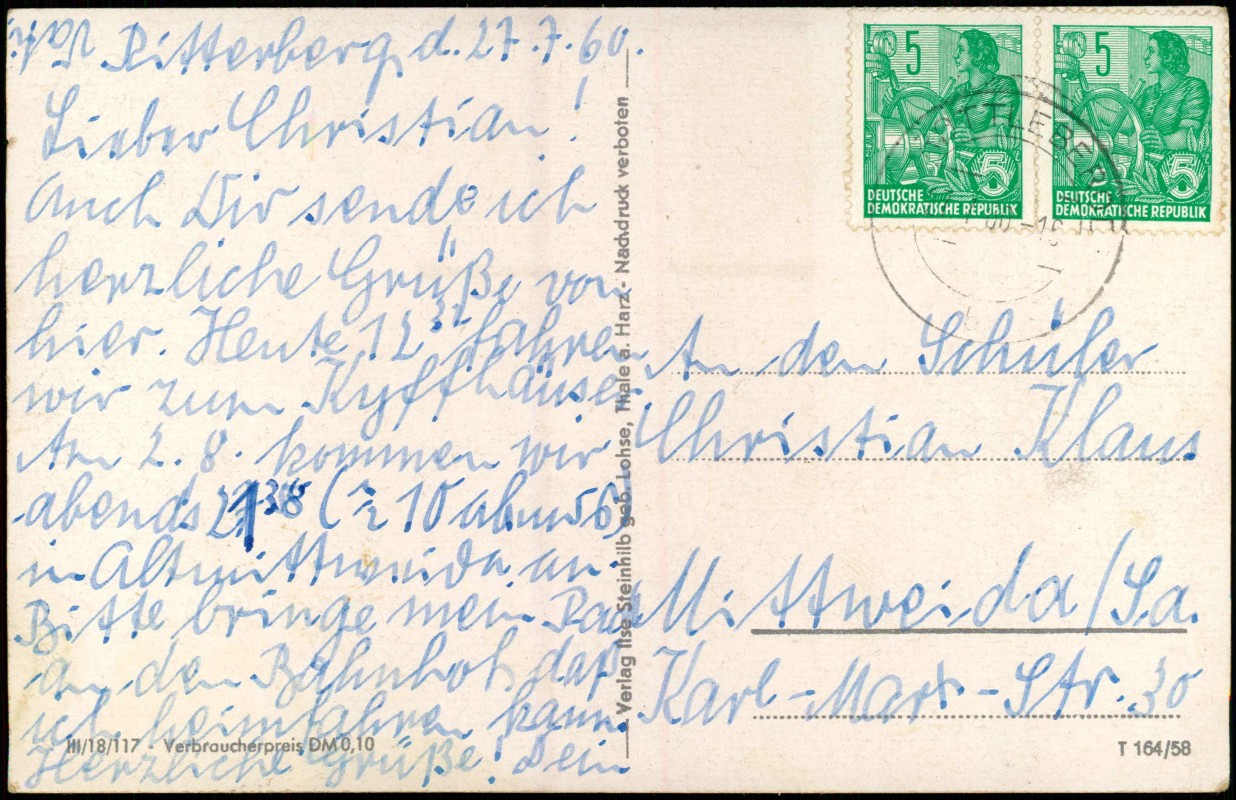 Ritterberg, d. 27.7.60.
Lieber Christian!
Auch Dir sende ich
herzliche Grüße von
hier. Heute 12 32 fahren
wir zum Kyffhäuser
Am 2. 8. kommen wir
abends 21 38 (≈ 10 abends)
in Altmittweida an.
Bitte bringe mein Rad
an den Bahnhof, daß
ich heimfahren kann.
Herzliche Grüße! Dein
Vati
III/18/117 · Verbraucherpreis DM 0,10
Verlag Ilse Steinhilb geb. Lohse, Thale a. Harz · Nachdruck verboten
5
DEUTSCHE
DEMOKRATISCHE REPUBLIK
5
5
DEUTSCHE
DEMOKRATISCHE REPUBLIK
5
An den Schüler
Christian Klaus
Mittweida/Sa.
Karl-Marx-Str. 30
T 164/58